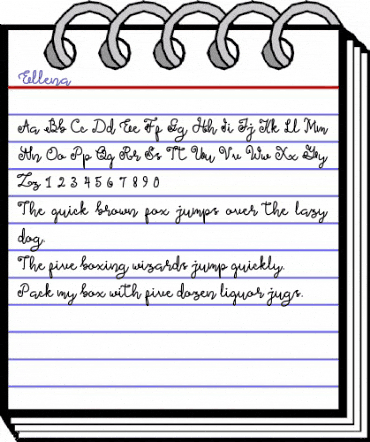 Ellena
Aa Bb Cc Dd Ee Ff Gg Hh Ii Jj Kk Ll Mm
Nn Oo Pp Qq Rr Ss Tt Uu Vv Ww Xx Yy
Zz 1 2 3 4 5 6 7 8 9 0
The quick brown fox jumps over the lazy
dog.
The five boxing wizards jump quickly.
Pack my box with five dozen liquor jugs.